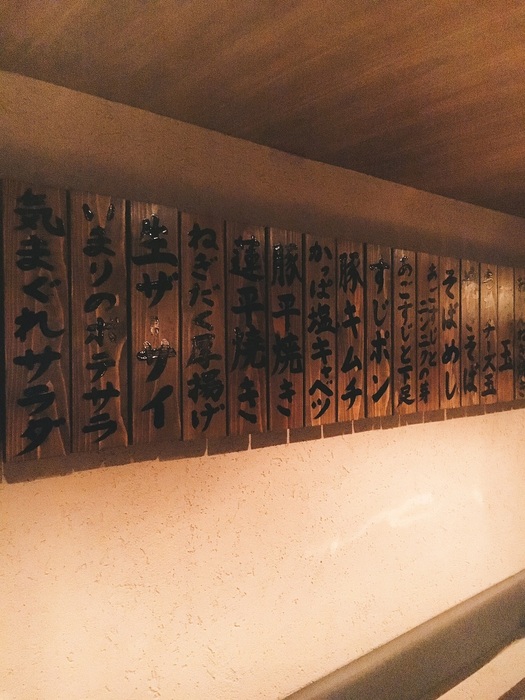 気まぐれサラダ
いまりのポテサラ
生ザーサイ
ねぎだく厚揚げ
蓮平焼き
豚平焼き
かっぱ塩キャベツ
豚キムチ
すじポン
あごすじと下足
そばめし
そば
チーズ玉
玉